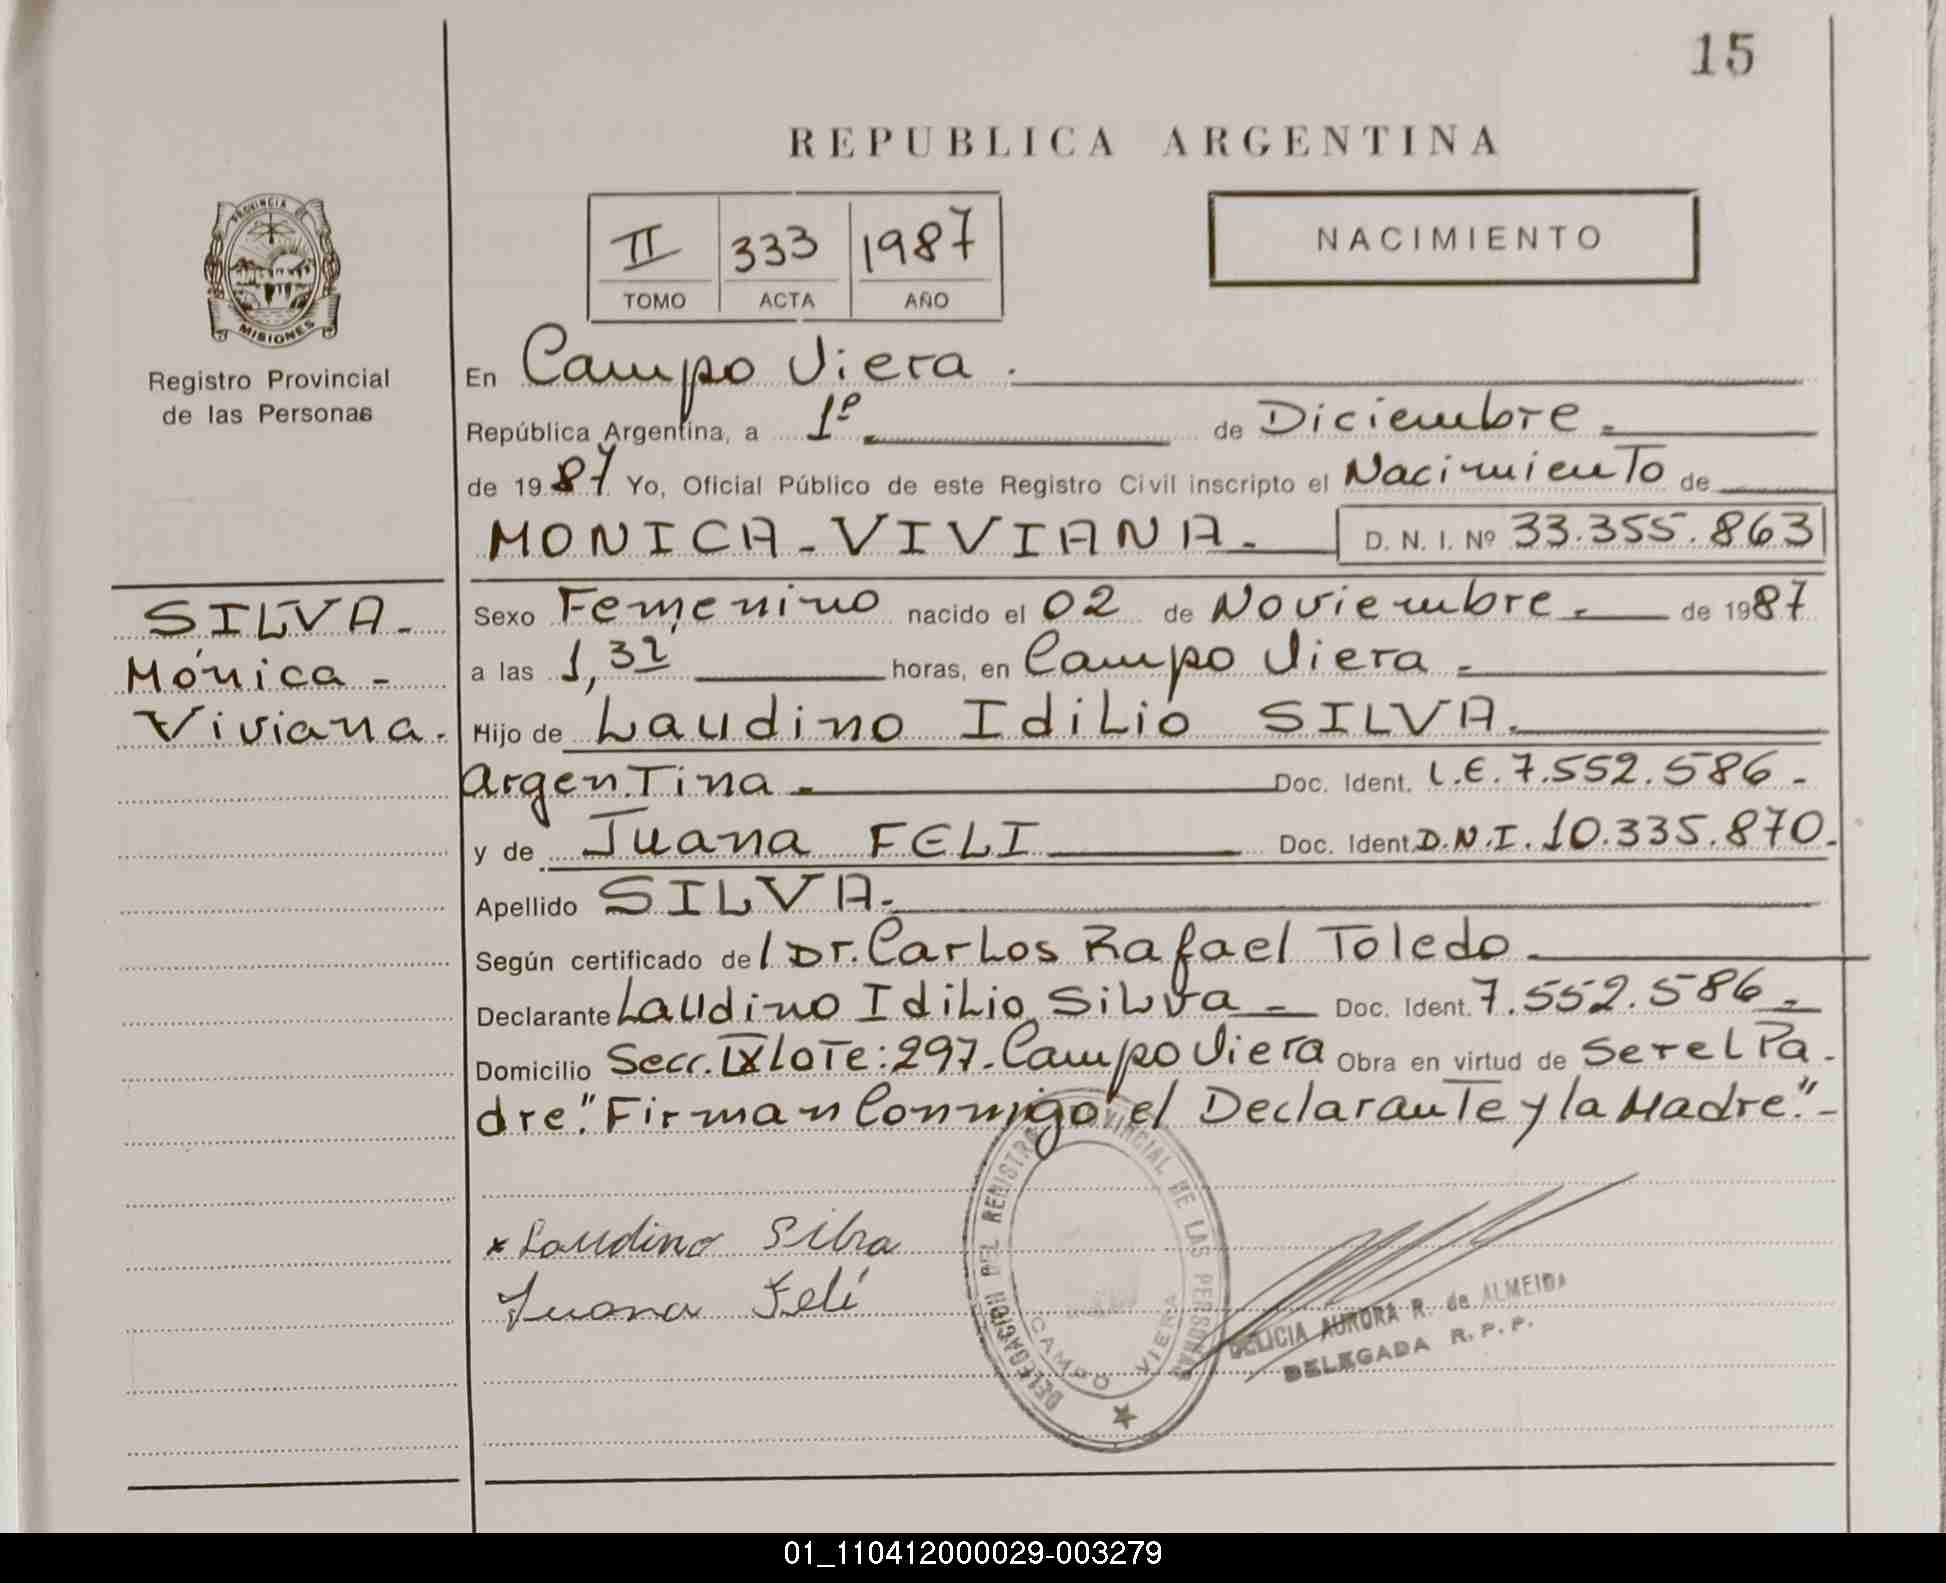 15
REPUBLICA ARGENTINA
PROVINCIA DE
MISIONES
Registro Provincial
de las Personas
II 333 1987
TOMO ACTA AÑO
NACIMIENTO
En Campo Viera.
República Argentina, a 1º de Diciembre.
de 1987 Yo, Oficial Público de este Registro Civil inscripto el Nacimiento de
MONICA-VIVIANA. D. N. I. Nº 33.355.863
SILVA.
Mónica-
Viviana.
Sexo Femenino nacido el 02 de Noviembre. de 1987
a las 1,32 horas, en Campo Viera.
Hijo de Laudino Idilio SILVA.
Argentina. Doc. Ident. L.E. 7.552.586-
y de Juana FELI Doc. Ident. D.N.I. 10.335.870.
Apellido SILVA.
Según certificado del Dr. Carlos Rafael Toledo
Declarante Laudino Idilio Silva- Doc. Ident. 7.552.586-
Domicilio Secc. IX Lote: 297. Campo Viera Obra en virtud de Ser el Pa-
dre." Firman Conmigo el Declarante y la Madre."-
x Laudino Silva
Juana Feli
DELEGACION DEL REGISTRO PROVINCIAL DE LAS PERSONAS
CAMPO VIERA
DELICIA AURORA R. de ALMEIDA
DELEGADA R. P. P.
01_110412000029-003279